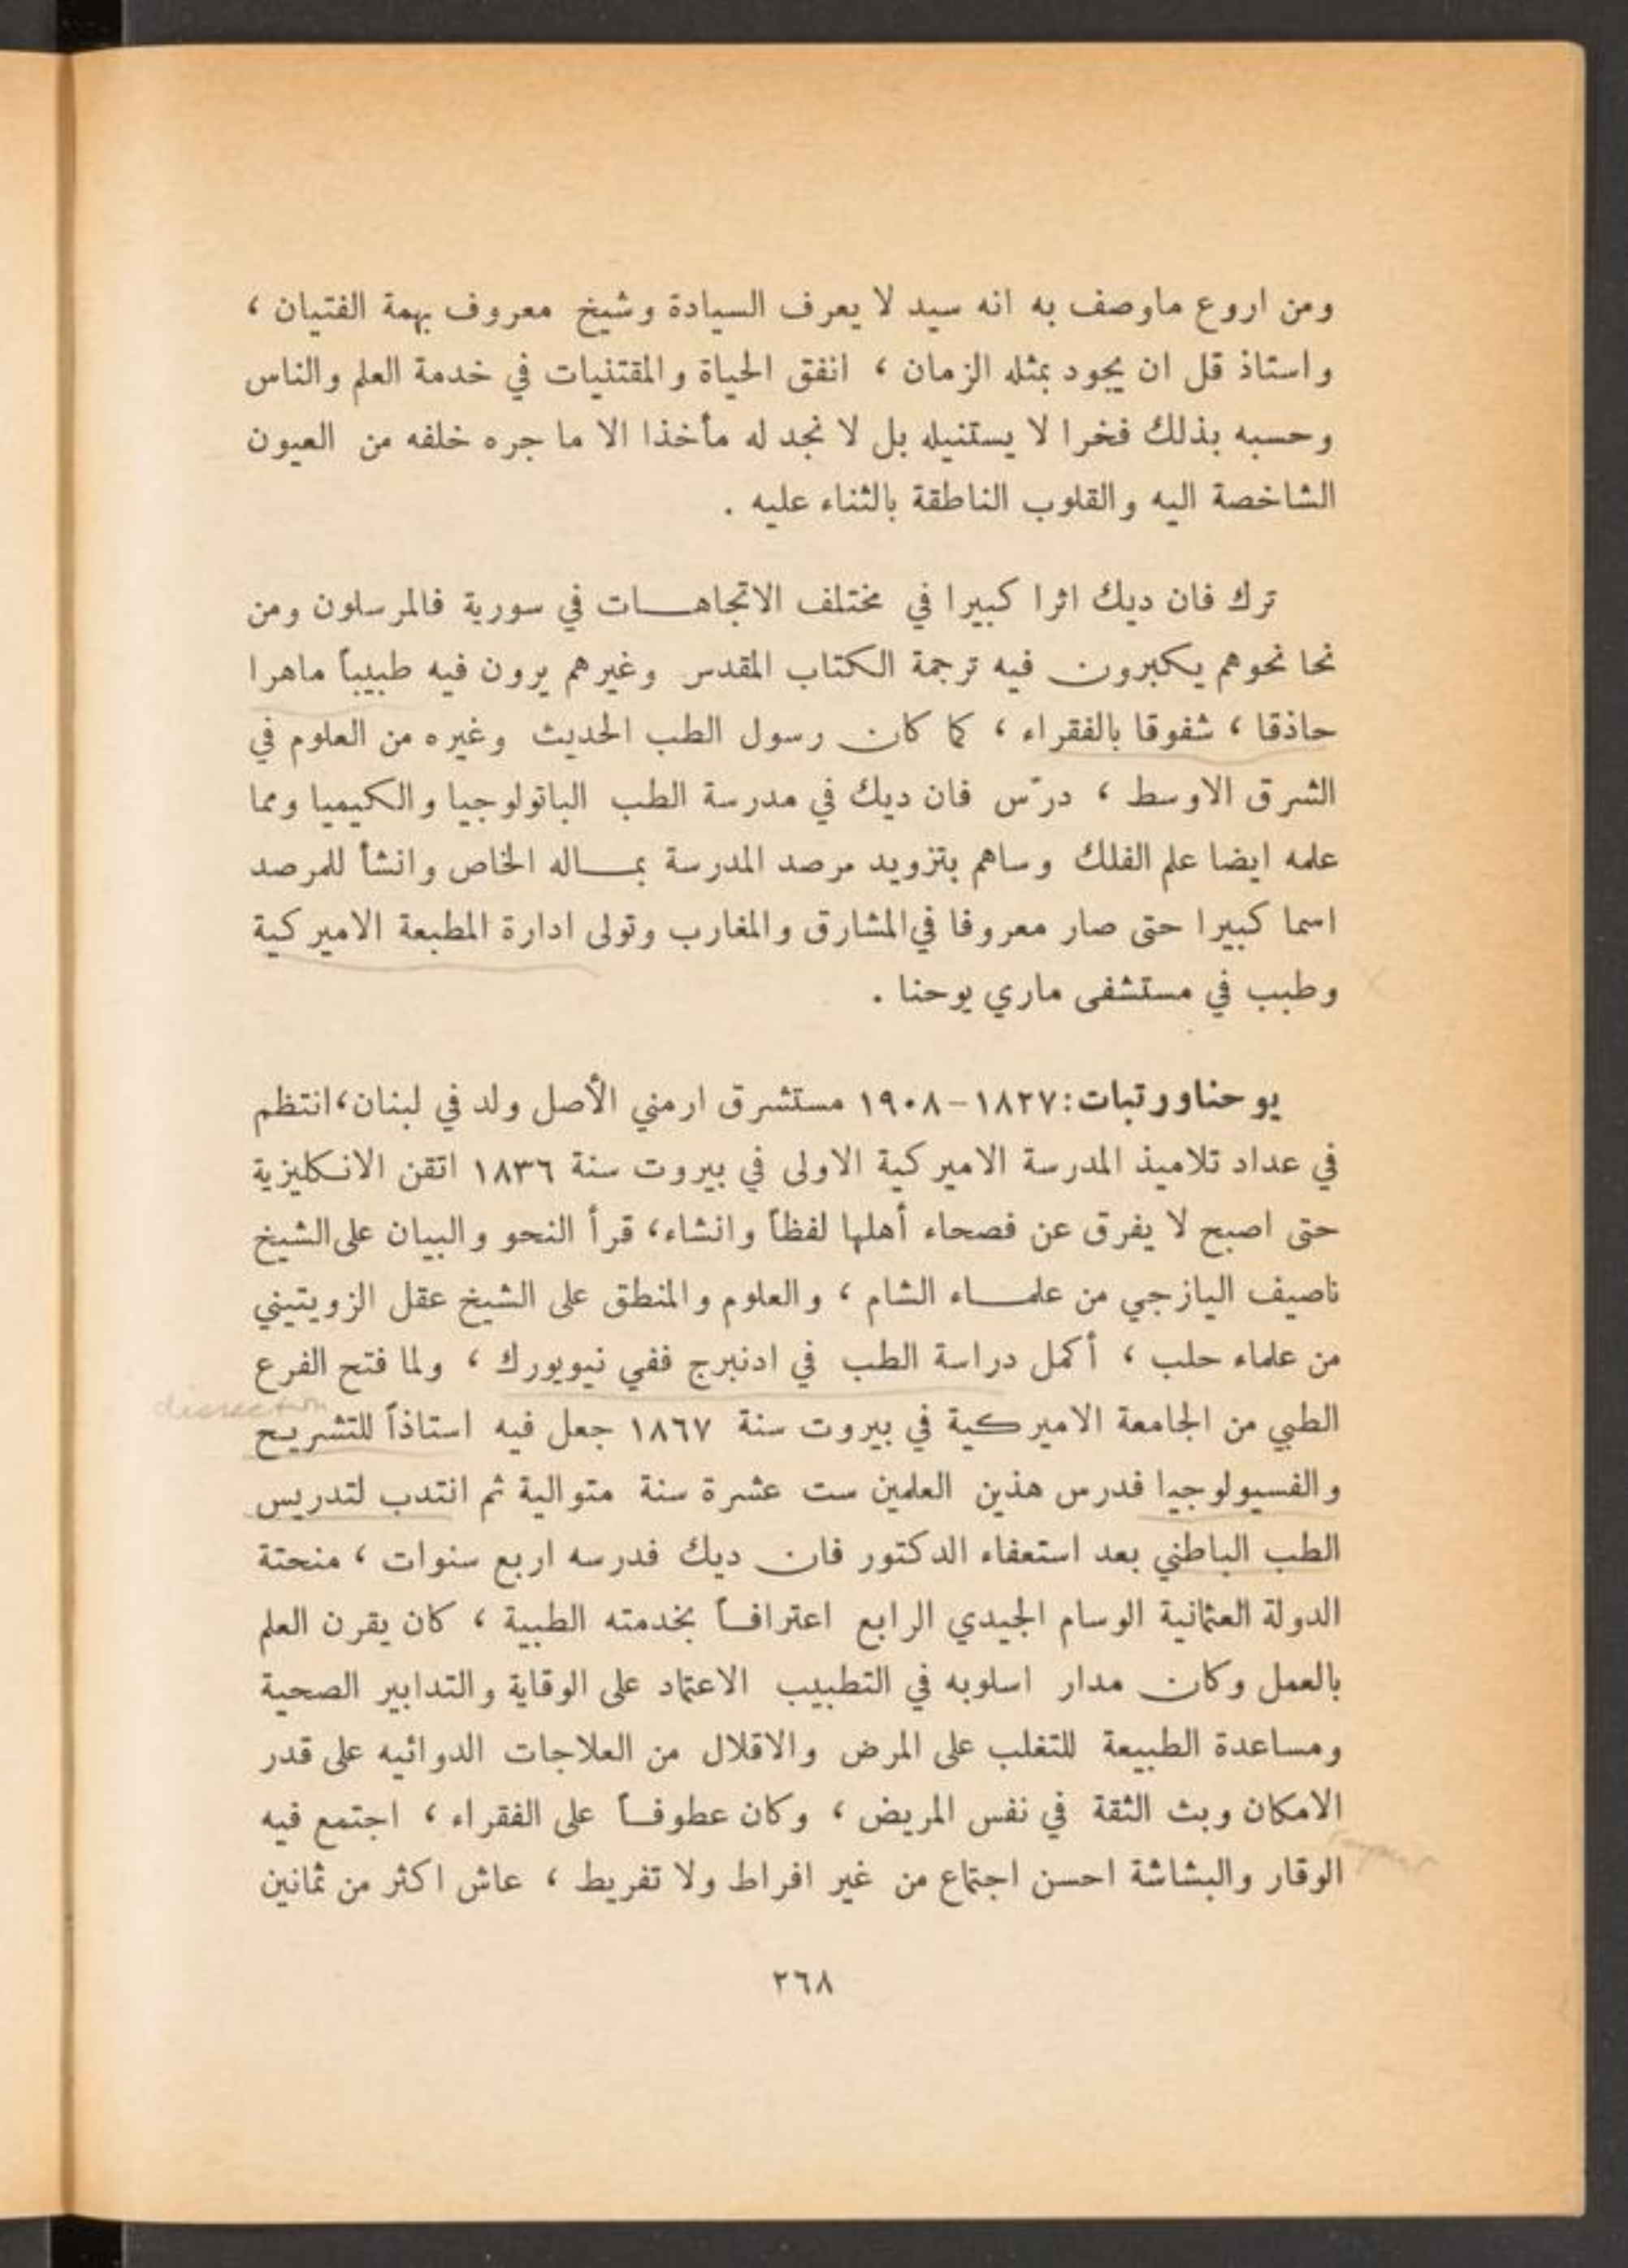 ومن اروع ماوصف به انه سيد لا يعرف السيادة وشيخ معروف بهمة الفتيان ،
واستاذ قل ان يجود بمثله الزمان ، انفق الحياة والمقتنيات في خدمة العلم والناس
وحسبه بذلك فخرا لا يستنيله بل لا نجد له مأخذا الا ما جره خلفه من العيون
الشاخصة اليه والقلوب الناطقة بالثناء عليه .
ترك فان ديك اثرا كبيرا في مختلف الاتجاهات في سورية فالمرسلون ومن
نحا نحوهم يكبرون فيه ترجمة الكتاب المقدس وغيرهم يرون فيه طبيباً ماهرا
حاذقا ، شفوقا بالفقراء ، كما كان رسول الطب الحديث وغيره من العلوم في
الشرق الاوسط ، درّس فان ديك في مدرسة الطب الباتولوجيا والكيميا ومما
علمه ايضا علم الفلك وساهم بتزويد مرصد المدرسة بماله الخاص وانشأ للمرصد
اسما كبيرا حتى صار معروفا في المشارق والمغارب وتولى ادارة المطبعة الاميركية
وطبب في مستشفى ماري يوحنا .
يوحنا ورتبات : ١٨٢٧-١٩٠٨ مستشرق ارمني الأصل ولد في لبنان ، انتظم
في عداد تلاميذ المدرسة الاميركية الاولى في بيروت سنة ١٨٣٦ اتقن الانكليزية
حتى اصبح لا يفرق عن فصحاء أهلها لفظاً وانشاء ، قرأ النحو والبيان على الشيخ
ناصيف اليازجي من علماء الشام ، والعلوم والمنطق على الشيخ عقل الزويتيني
من علماء حلب ، أكمل دراسة الطب في ادنبرج ففي نيويورك ، ولما فتح الفرع
dissection
الطبي من الجامعة الاميركية في بيروت سنة ١٨٦٧ جعل فيه استاذاً للتشريح
والفسيولوجيا فدرس هذين العلمين ست عشرة سنة متوالية ثم انتدب لتدريس
الطب الباطني بعد استعفاء الدكتور فان ديك فدرسه اربع سنوات ، منحتة
الدولة العثمانية الوسام المجيدي الرابع اعترافاً بخدمته الطبية ، كان يقرن العلم
بالعمل وكان مدار اسلوبه في التطبيب الاعتماد على الوقاية والتدابير الصحية
ومساعدة الطبيعة للتغلب على المرض والاقلال من العلاجات الدوائيه على قدر
الامكان وبث الثقة في نفس المريض ، وكان عطوفاً على الفقراء ، اجتمع فيه
الوقار والبشاشة احسن اجتماع من غير افراط ولا تفريط ، عاش اكثر من ثمانين
٢٦٨